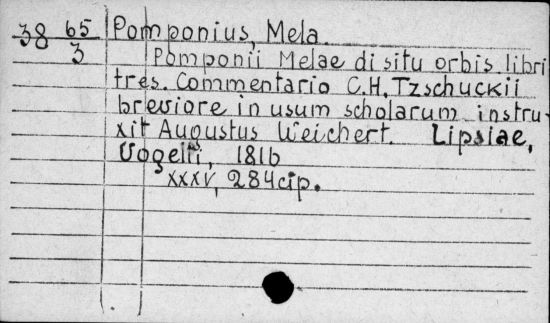 38 65 Pomponius, Mela.
3 Pomponii Melae di situ orbis libri
tres. Commentario C.H. Tzschuckii
breviore in usum scholarum instru-
xit Augustus Weichert. Lipsiae,
1816
XXXV, 284 cip.